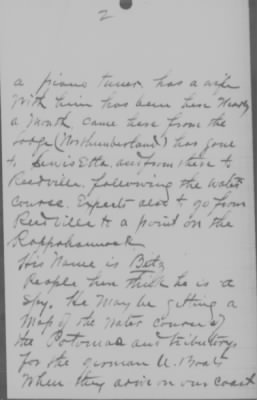 2
a piano tuner, has a wife
with him has been here nearly
a month, came here from the
Lodge (Northumberland) has gone
to Lewisetta, and from there to
Reedville, following the water
course. Expects also to go from
Reedville to a point on the
Rappahannock
His Name is Betz
People here think he is a
Spy. He may be getting a
Map of the water course of
the Potomac and tributary,
for the german U. Boats
When they arrive on our coast